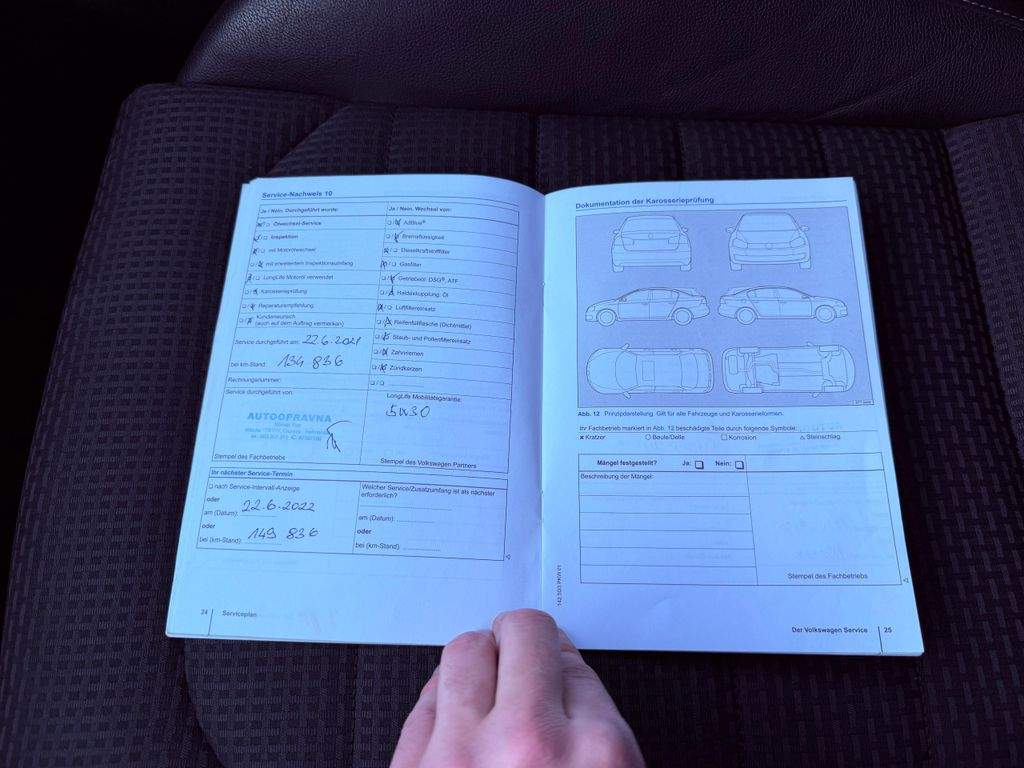 Service-Nachweis 10
Ja / Nein. Durchgeführt wurde:
Ölwechsel-Service
Inspektion
mit Motorölwechsel
mit erweitertem Inspektionsumfang
LongLife Motoröl verwendet
Karosserieprüfung
Reparaturempfehlung
Kundenwunsch
(auch auf dem Auftrag vermerken)
Service durchgeführt am: 22.6.2021
bei km-Stand: 134 836
Rechnungsnummer:
Service durchgeführt von:
AUTOOPRAVNA
Stempel des Fachbetriebs
Ja / Nein. Wechsel von:
AdBlue®
Bremsflüssigkeit
Dieselkraftstofffilter
Gasfilter
Getriebeöl: DSG®, ATF
Haldexkupplung: Öl
Luftfiltereinsatz
Reifenfüllflasche (Dichtmittel)
Staub- und Pollenfiltereinsatz
Zahnriemen
Zündkerzen
LongLife Mobilitätsgarantie:
5W30
Stempel des Volkswagen Partners
Ihr nächster Service-Termin
nach Service-Intervall-Anzeige
oder
am (Datum): 22.6.2022
oder
bei (km-Stand): 149 836
Welcher Service/Zusatzumfang ist als nächster
erforderlich?
am (Datum):
oder
bei (km-Stand):
24 Serviceplan
Dokumentation der Karosserieprüfung
Abb. 12 Prinzipdarstellung. Gilt für alle Fahrzeuge und Karosserieformen.
Ihr Fachbetrieb markiert in Abb. 12 beschädigte Teile durch folgende Symbole:
Kratzer Beule/Delle Korrosion Steinschlag
Mängel festgestellt? Ja: Nein:
Beschreibung der Mängel:
Stempel des Fachbetriebs
142.5D3.PKW.01
Der Volkswagen Service 25